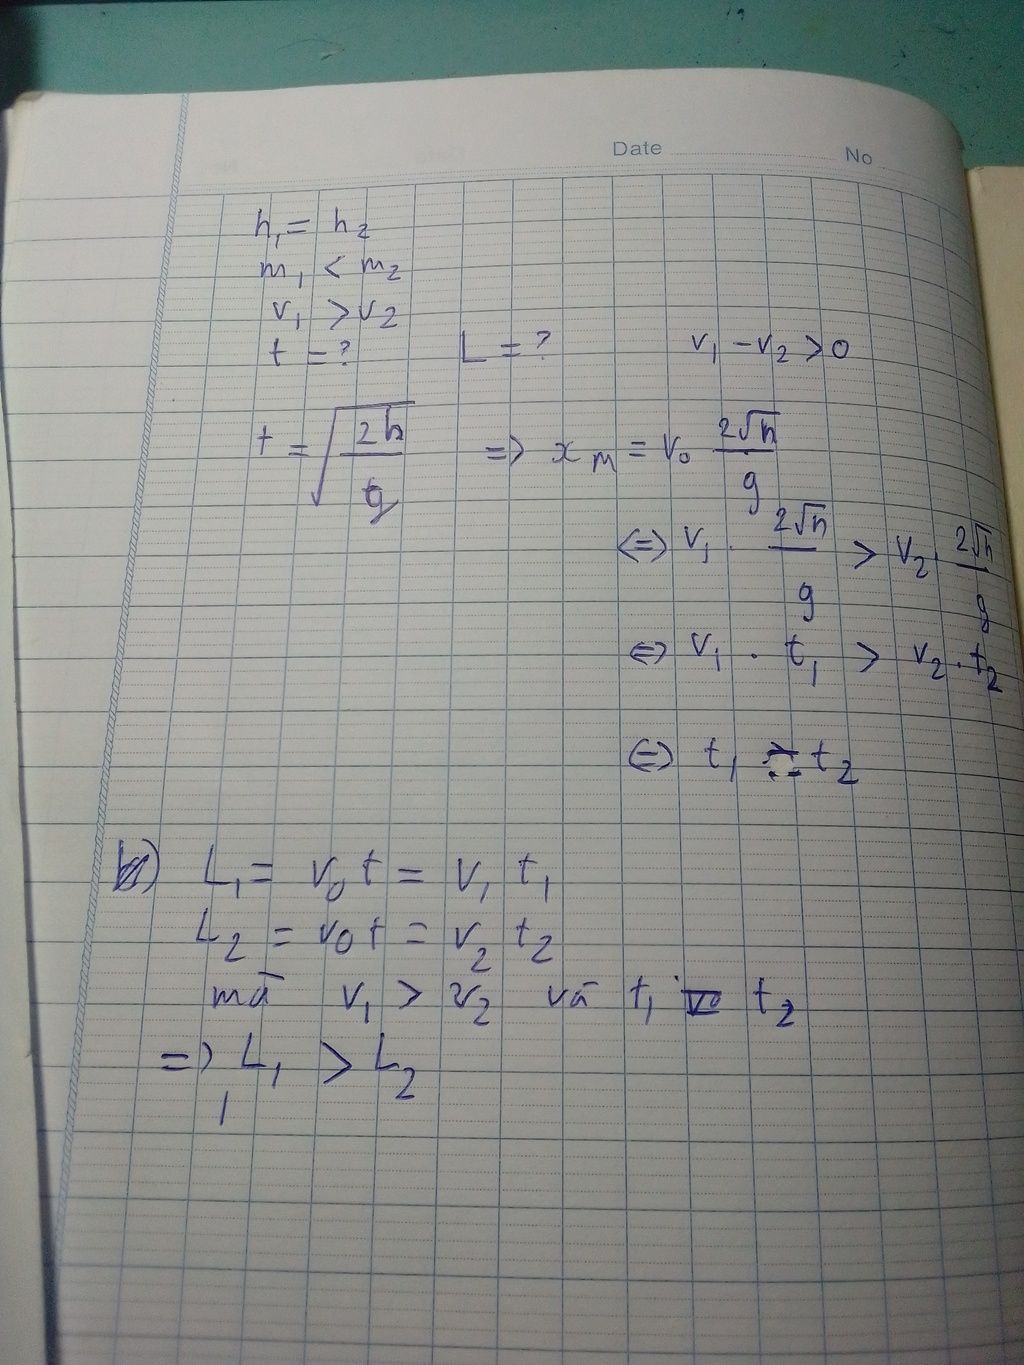 Date No
h₁ = h₂
m₁ < m₂
v₁ > v₂
t = ? L = ? v₁ - v₂ > 0
t = √(2h/g) => x_m = v₀ 2√h/g
<=> v₁ . 2√h/g > v₂ . 2√h/g
<=> v₁ . t₁ > v₂ . t₂
<=> t₁ t₂
b) L₁ = v₀t = v₁ t₁
L₂ = v₀t = v₂ t₂
mà v₁ > v₂ và t₁ = t₂
=> L₁ > L₂